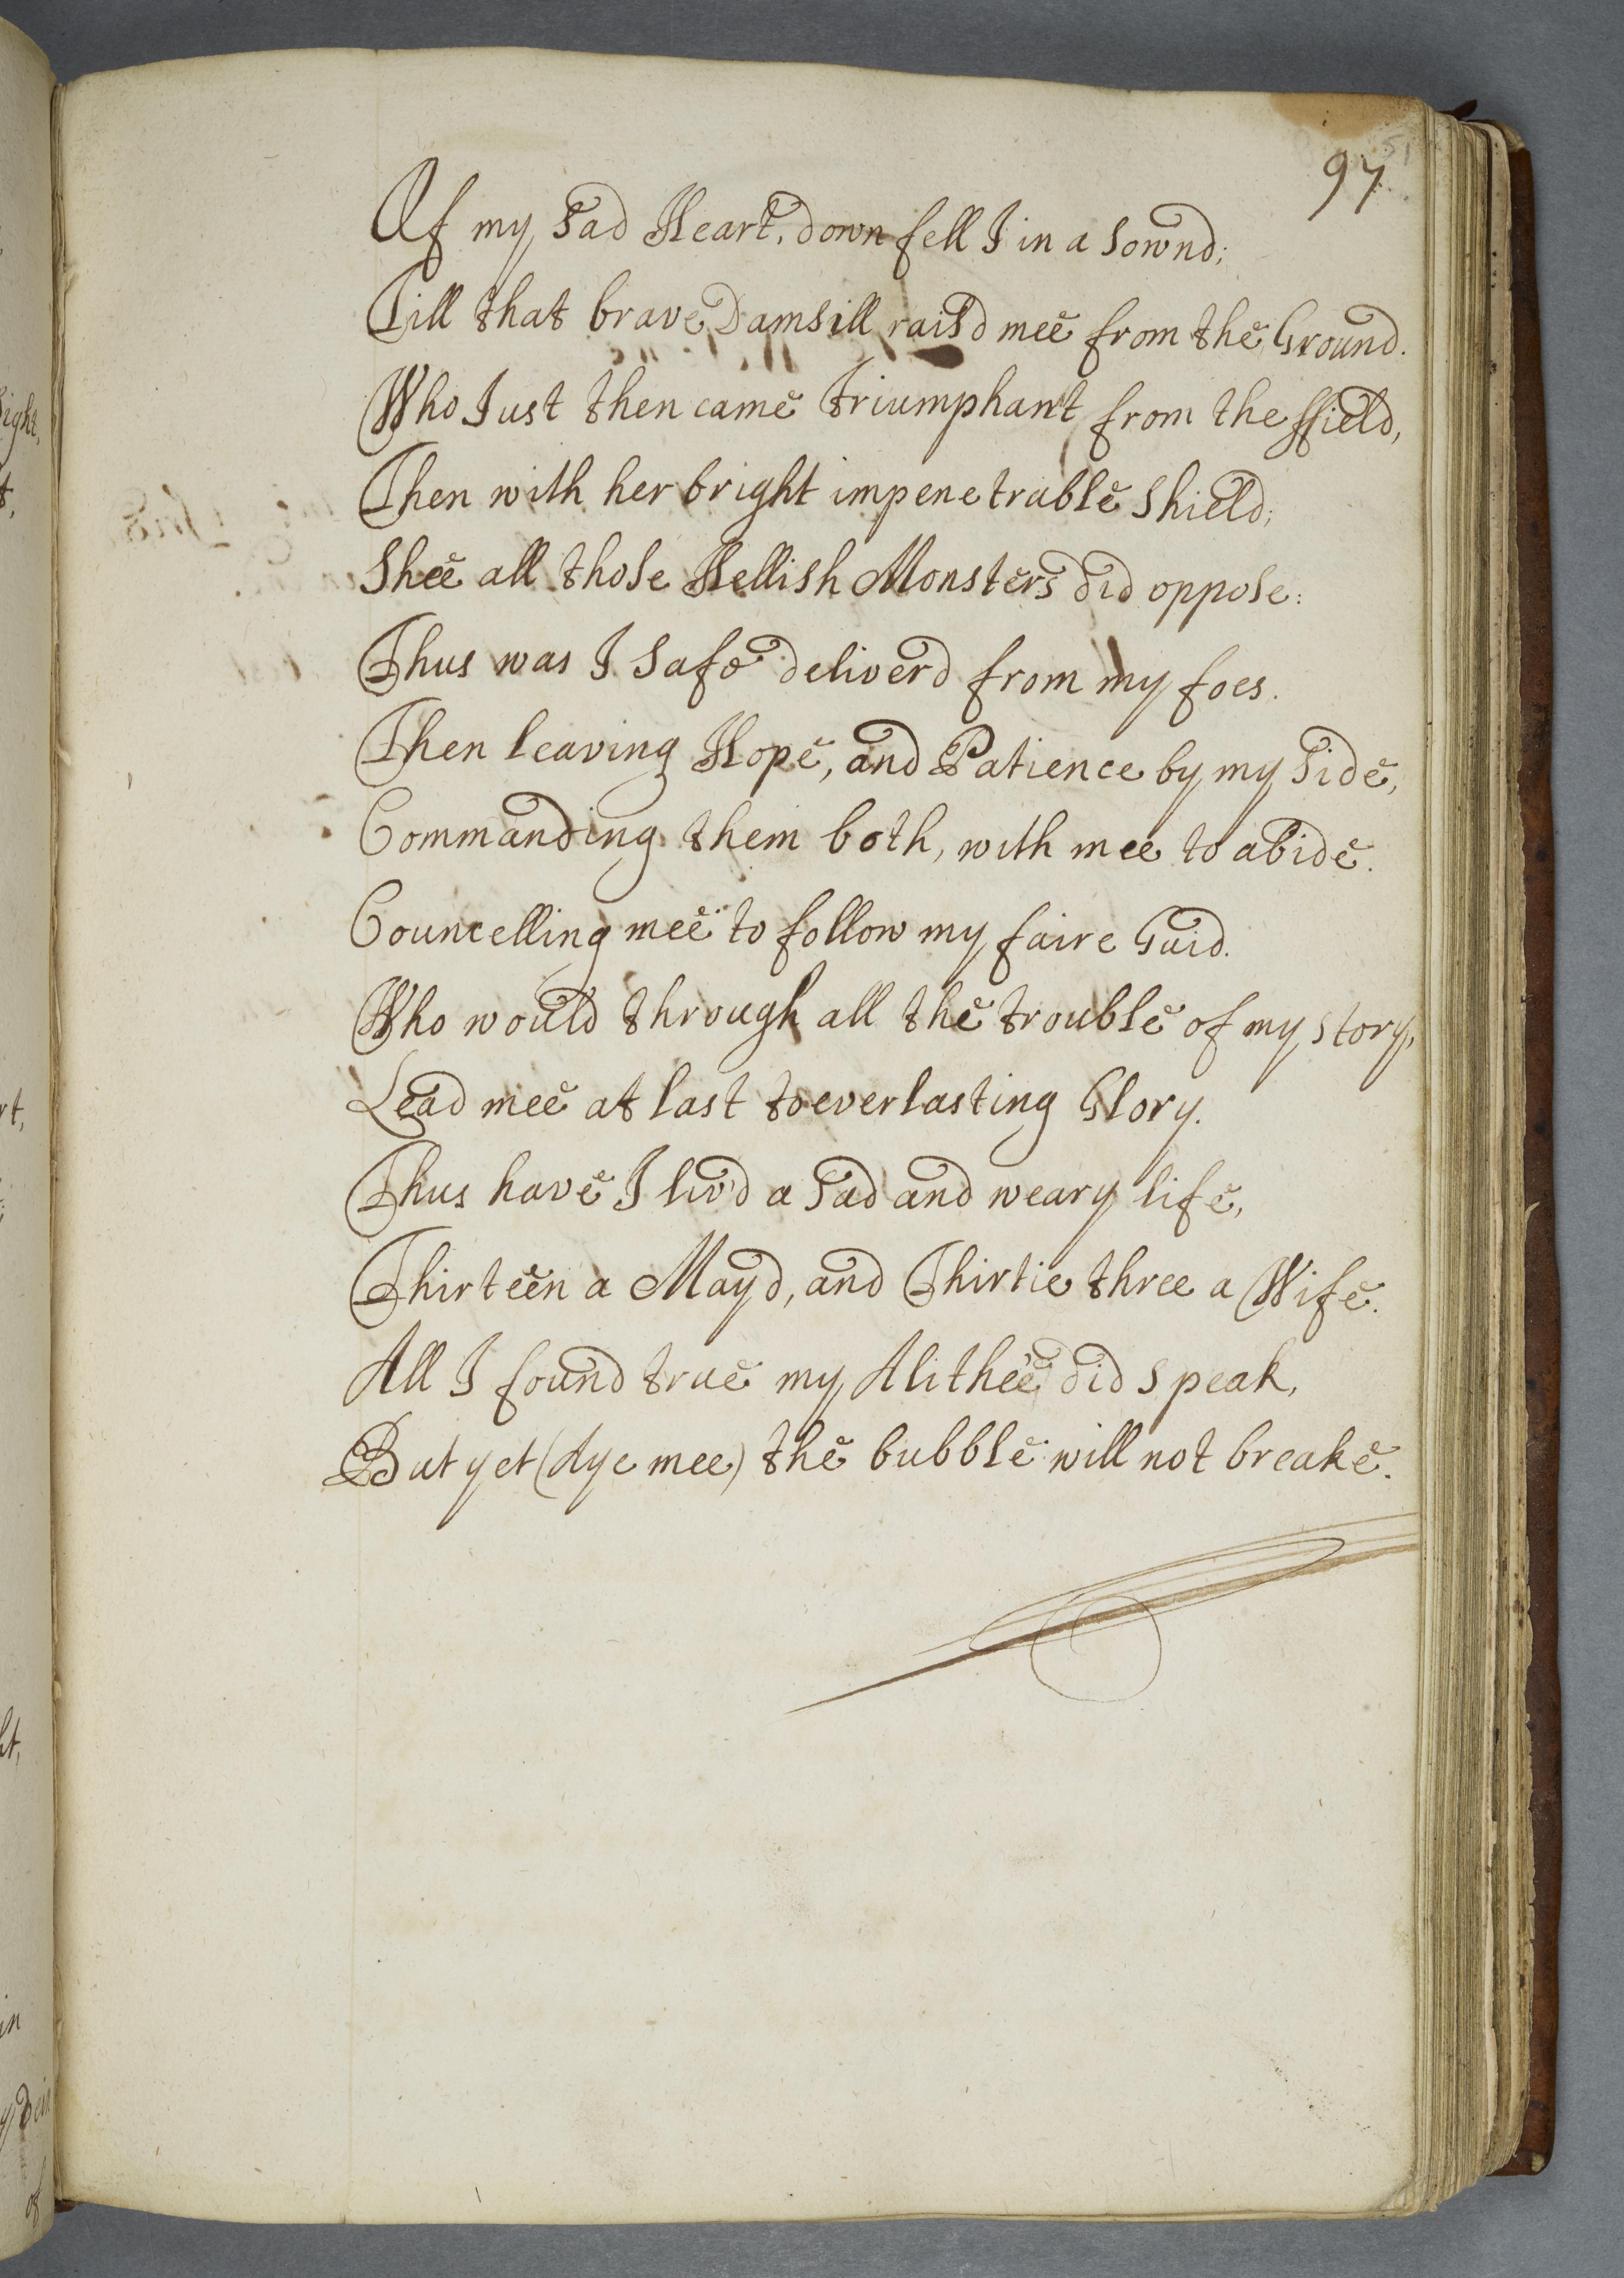 97
51
Of my Sad Heart, down fell I in a Sownd;
Till that brave Damsill rais'd mee from the Ground.
Who Just then came triumphant from the ffield,
Then with her bright impenetrable Shield;
Shee all those Hellish Monsters did oppose:
Thus was I Safe deliverd from my foes.
Then leaving Hope, and Patience by my Side,
Commanding them both, with mee to abide.
Councelling mee to follow my faire Guid.
Who would through all the trouble of my Story,
Lead mee at last to everlasting Glory.
Thus have I liv'd a Sad and weary life,
Thirteen a Mayd, and Thirtie three a Wife.
All I found true my Alithee did Speak,
But yet (Aye mee) the bubble will not breake.